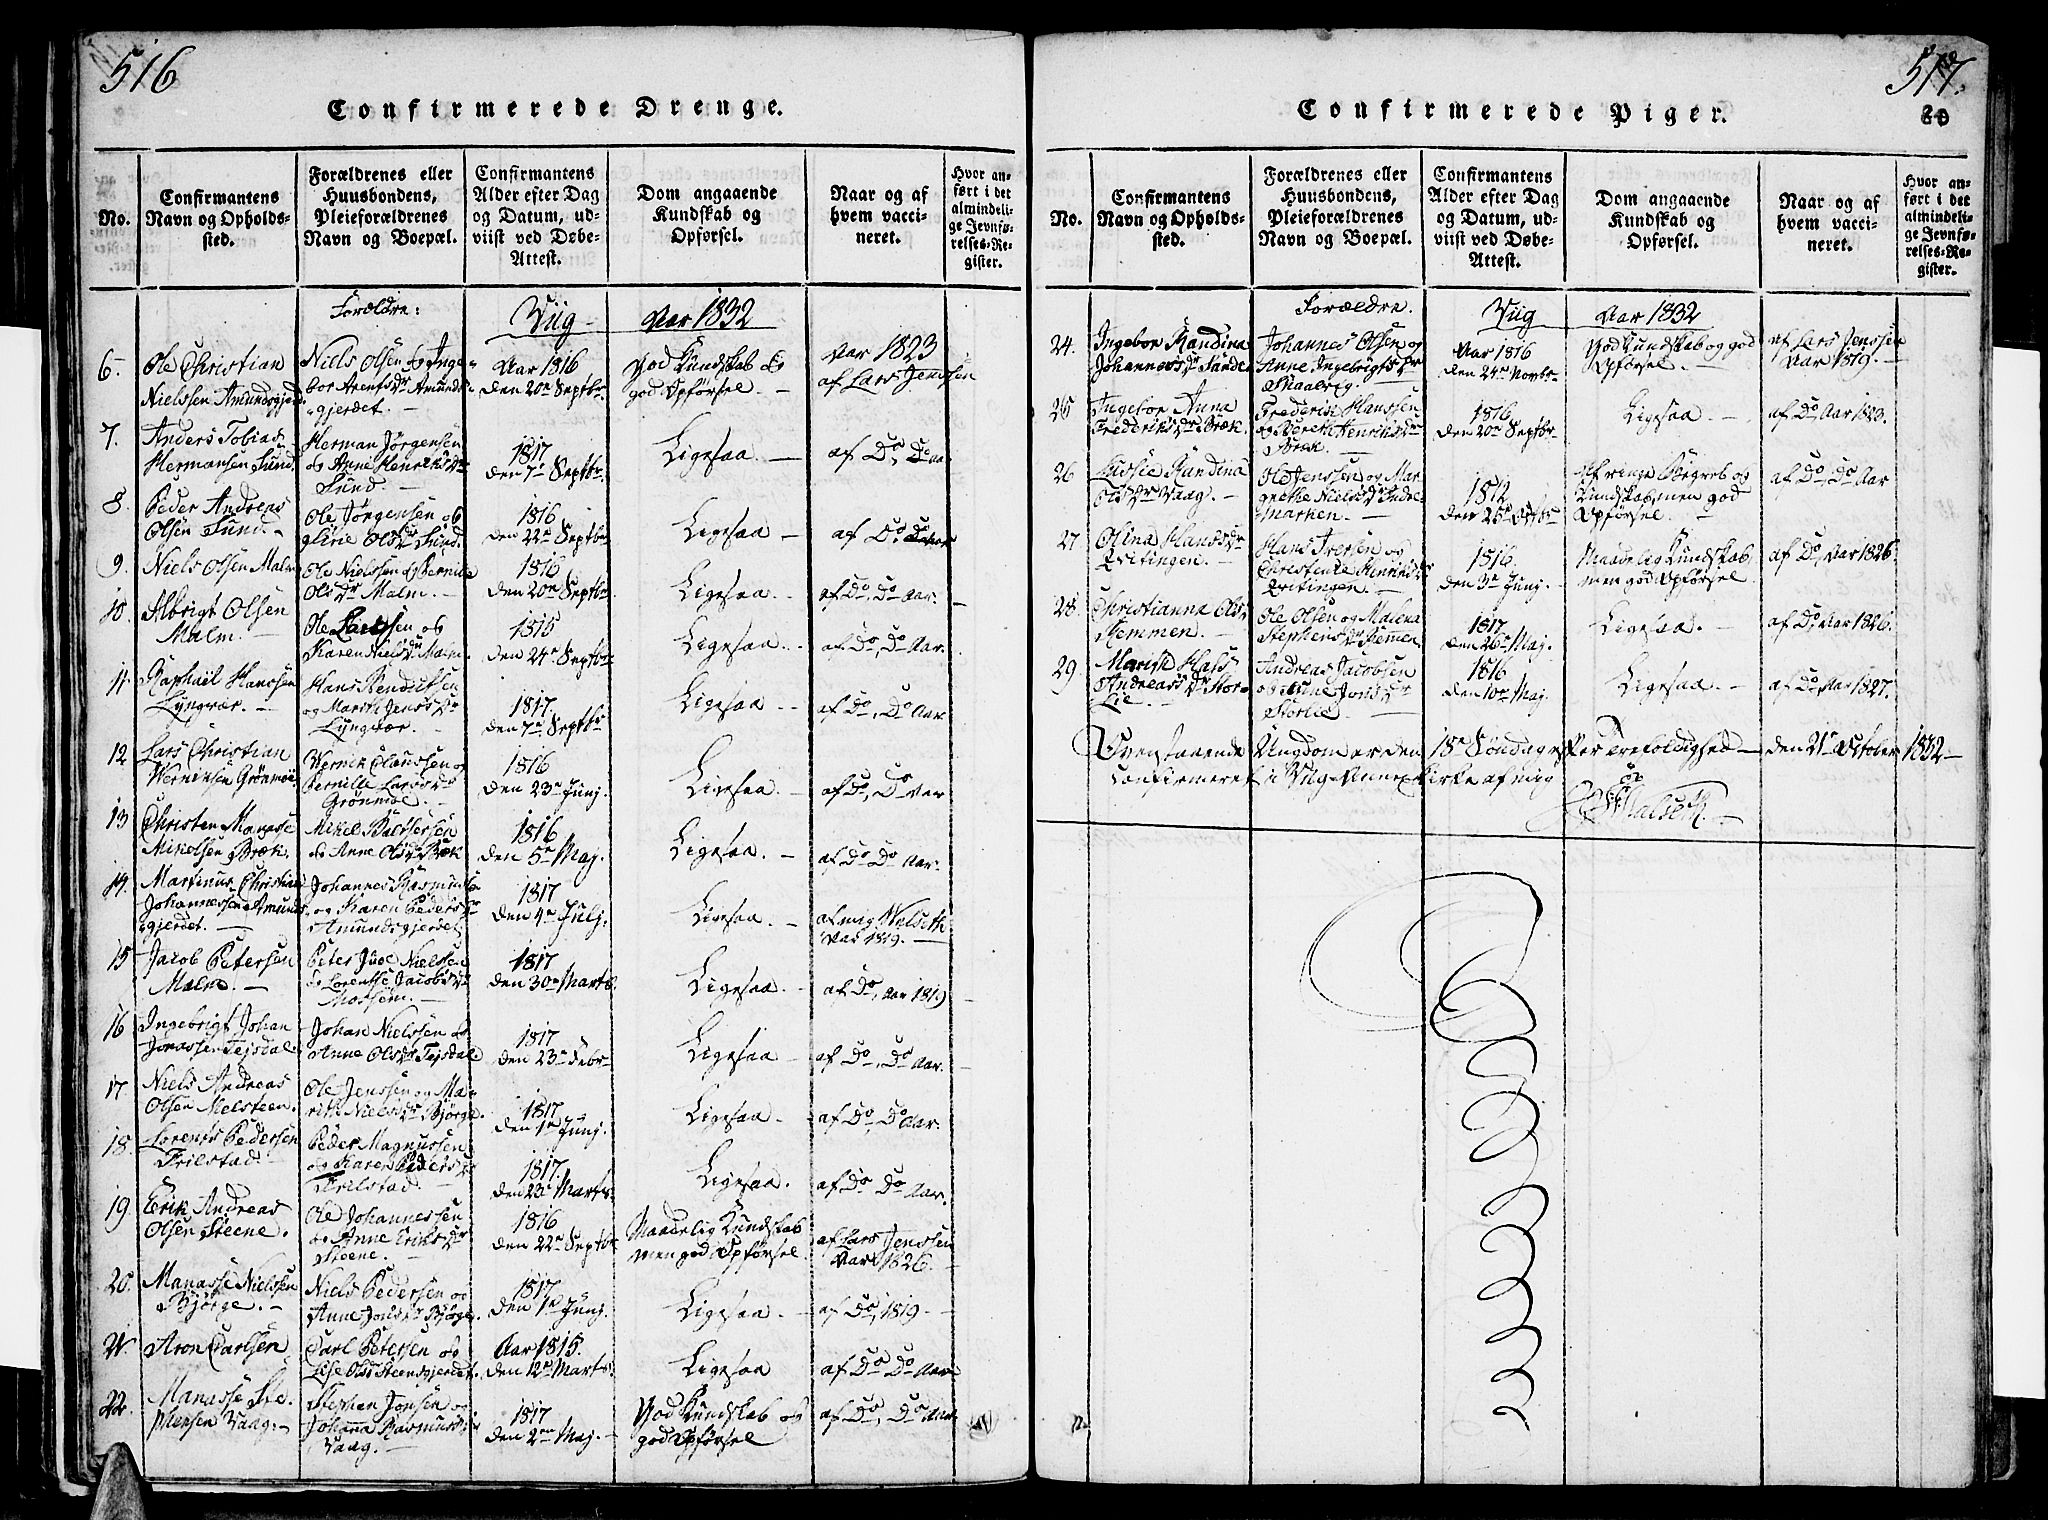 516
Confirmerede Drenge.
No.
Confirmantens
Navn og Opholds-
sted.
Forældrenes eller
Huusbondens,
Pleieforældrenes
Navn og Boepæl.
Confirmantens
Alder efter Dag
og Datum, ud-
viist ved Døbe-
Attest.
Dom angaaende
Kundskab og
Opførsel.
Naar og af
hvem vacci-
neret.
Hvor an-
ført i det
almindeli-
ge Jevnfø-
relses-Re-
gister.
Forældre:
Viig
Aar 1832
6.
Ole Christian
Nielssen Amundsgjerd.
Niels Olsen og Inge-
bor Arentsdr Amunds-
gjerdet. -
Aar 1816
den 20de Septbr.
God Kundskab og
god Opførsel
Aar 1823
af Lars Jenssen
7.
Anders Tobias
Hermansen Sund
Herman Jørgensen
og Anne Henriksdr
Sund. -
1817
den 7de Septbr.
Ligesaa. -
af Do, Do Aar
8.
Peder Andreas
Olsen Sund. -
Ole Jørgensen og
Olsdr Sund.
1816
den 22de Septbr
Ligesaa -
af Do Do Aar
9.
Niels Olsen Malm
Ole Nielssen og Pernille
Olsdr Malm. -
1816
den 20de Septbr.
Ligesaa. -
af Do, Do Aar. -
10.
Albrigt Olsen
Malm. -
Ole Larssen og
Karen Nielsdr Malm.
1815
den 24de Septbr
Ligesaa. -
af Do, Do Aar.
11.
Raphail Hanssen
Lyngvær. -
Hans Bendiktsen
og Marith Jensdr
Lyngvær.
1817.
den 7de Septbr
Ligesaa. -
af Do, Do Aar
12
Lars Christian
Werniksen Grønmoe
Wernik Claussen og
Pernille Larsdr
Grønmoe. -
1816
den 23de Junj.
Ligesaa. -
af Do, Do Aar
13
Christen Manasse
Mikelsen Bræk.
Mikel Baltsersen
og Anne Olsdr Bræk
1816
den 5te Maj.
Ligesaa. -
af Do Do Aar.
14.
Martinus Christian
Johannessen Amunds-
gjerdet. -
Johannes Rasmuss.
og Karen Pedersdr
Amundsgjerdet.
1817
den 4de Julj.
Ligesaa -
af mig Welseth
Aar 1819. -
15
Jacob Petersen
Malm. -
Peter Juul Nielssen
og Lorentse Jacobsdr
Mossem. -
1817
den 30de Marts.
Ligesaa -
af Do, Aar 1819 -
16
Ingebrigt Johan
Jonassen Tejsdal.
Johan Nielssen og
Anne Olsdr Tejsdal.
1817
den 23de Febr-
Ligesaa -
af Do, Do Aar.
17.
Niels Andreas
Olsen Melsteen.
Ole Jenssen og Ma-
rith Nielsdr Bjørge.
1817
den 1te Junj.
Ligesaa -
af Do, Do Aar.
18.
Lorents Pedersen
Frilstad. -
Peder Magnussen
og Karen Pedersdr
Frilstad. -
1817.
den 23de Marts
Ligesaa.
af Do Do Aar.
19
Erik Andreas
Olsen Steene.
Ole Johannessen
og Anne Eriksdr
Steene. -
1816
den 22de Septbr
Maadelig Kundskab
men god Opførsel
af Lars Jenssen
Aar 1826.
20.
Manasse Nielssen
Bjørge. -
Niels Pedersen og
Anne Jonsdr Bjørge.
1817
den 1te Junj.
Ligesaa. -
af Do, 1819 -
21.
Aron Carlsen
Carl Petersen og
Lise Olsd Steensgjerdet.
Aar 1815.
den 12te Marts.
Ligesaa
af Do Do Aar
22.
Manasse Ste-
phensen Vaag. -
Stephen Jonsen og
Johanna Rasmusdr
Vaag. -
1817
den 2den Maj. -
God Kundskab og
god Opførsel
af Do, Do Aar.
517.
80
Confirmerede Piger.
No.
Confirmantens
Navn og Opholds-
sted.
Forældrenes eller
Huusbondens,
Pleieforældrenes
Navn og Boepæl.
Confirmantens
Alder efter Dag
og Datum, ud-
viist ved Døbe-
Attest.
Dom angaaende
Kundskab og
Opførsel.
Naar og af
hvem vacci-
neret.
Hvor an-
ført i det
almindeli-
ge Jevnfø-
relses-Re-
gister.
Forældre.
Viig
Aar 1832
24.
Ingebor Randina
Johannesdr Sande
Johannes Olsen og
Anne Ingebrigtsdr
Aar 1816
den 24de Novbr.
God Kundskab og god
Opførsel. -
af Lars Jenssen
Aar 1819. -
25
Ingebor Anna
Frederiksdr Bræk.
Frederik Hanssen
og Bereth Henriksdr
Bræk. -
1816
den 20de Septbr.
Ligesaa. -
af Do Aar 1823.
26
Randina
Olsdr Vaag. -
Ole Jenssen og Mar-
grethe Nielsdr Inde-
marken. -
1812
den 25de Octbr
Af ringe Begreb og
Kundskab, men god
Opførsel. -
af Do, Do Aar
27
Olina Hansdr
Qvitingen.
Hans Iversen og
Henriksdr
Qvitingen. -
1816.
den 3de Junj.
Maadelig Kundskab
men god Opførsel.
af Do, Aar 1826.
28.
Christianna Olsdr
Hemmen. -
Ole Olsen og Malena
Stephensdr Hemmen
1817
den 26de Maj.
Ligesaa. -
af Do, Aar 1826.
29.
Marith Hass
Andreasdr Stor-
Lie. -
Andreas Jacobsen
og Anne Jonsdr
Storlie. -
1816
den 10de Maj.
Ligesaa. -
af Do, Aar 1827.
Ovenstaaende Ungdom er den 18de Søndag efter Trefoldighed - den 21de October 1832 -
Confirmeret i Viig Annex Kirke af mig